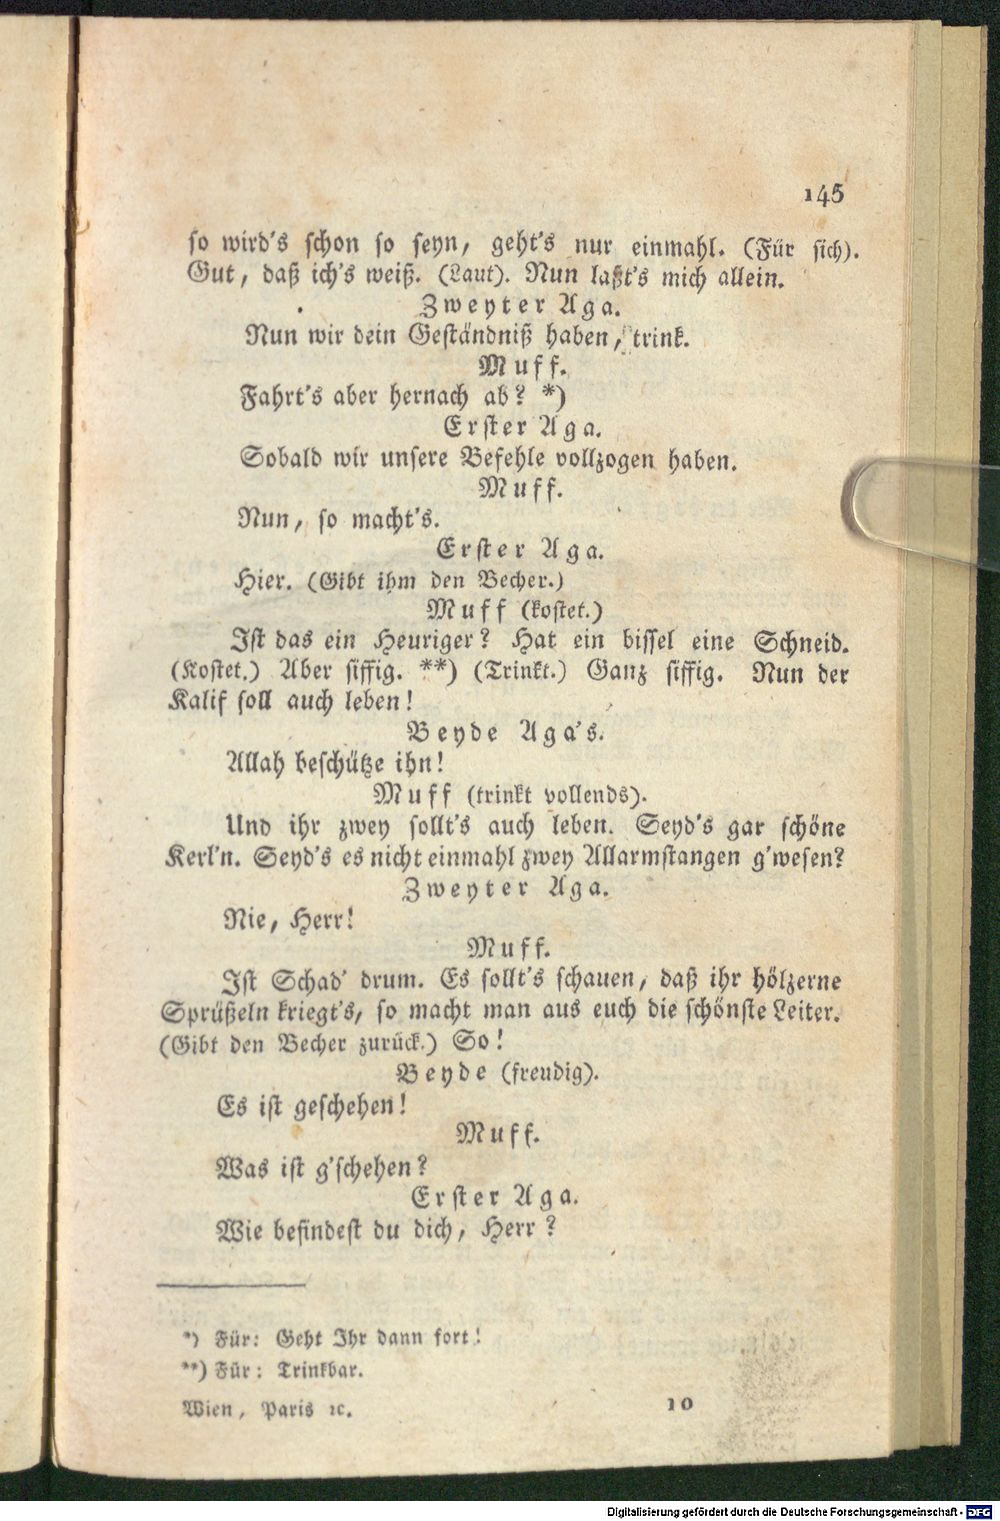 145
so wird's schon so seyn, geht's nur einmahl. (Für sich).
Gut, daß ich's weiß. (Laut). Nun laßt's mich allein.
Zweyter Aga.
Nun wir dein Geständniß haben, trink.
Muff.
Fahrt's aber hernach ab? *)
Erster Aga.
Sobald wir unsere Befehle vollzogen haben.
Muff.
Nun, so macht's.
Erster Aga.
Hier. (Gibt ihm den Becher.)
Muff (kostet.)
Ist das ein Heuriger? Hat ein bissel eine Schneid.
(Kostet.) Aber siffig. **) (Trinkt.) Ganz siffig. Nun der
Kalif soll auch leben!
Beyde Aga's.
Allah beschütze ihn!
Muff (trinkt vollends).
Und ihr zwey sollt's auch leben. Seyd's gar schöne
Kerl'n. Seyd's es nicht einmahl zwey Allarmstangen g'wesen?
Zweyter Aga.
Nie, Herr!
Muff.
Ist Schad' drum. Es sollt's schauen, daß ihr hölzerne
Sprüßeln kriegt's, so macht man aus euch die schönste Leiter.
(Gibt den Becher zurück.) So!
Beyde (freudig).
Es ist geschehen!
Muff.
Was ist g'schehen?
Erster Aga.
Wie befindest du dich, Herr?
*) Für: Geht Ihr dann fort!
**) Für: Trinkbar.
Wien, Paris ꝛc. 10
Digitalisierung gefördert durch die Deutsche Forschungsgemeinschaft - DFG